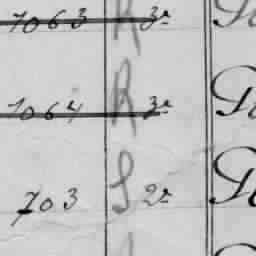 7063 R 3ª
7064 R 3ª
703 S 2ª